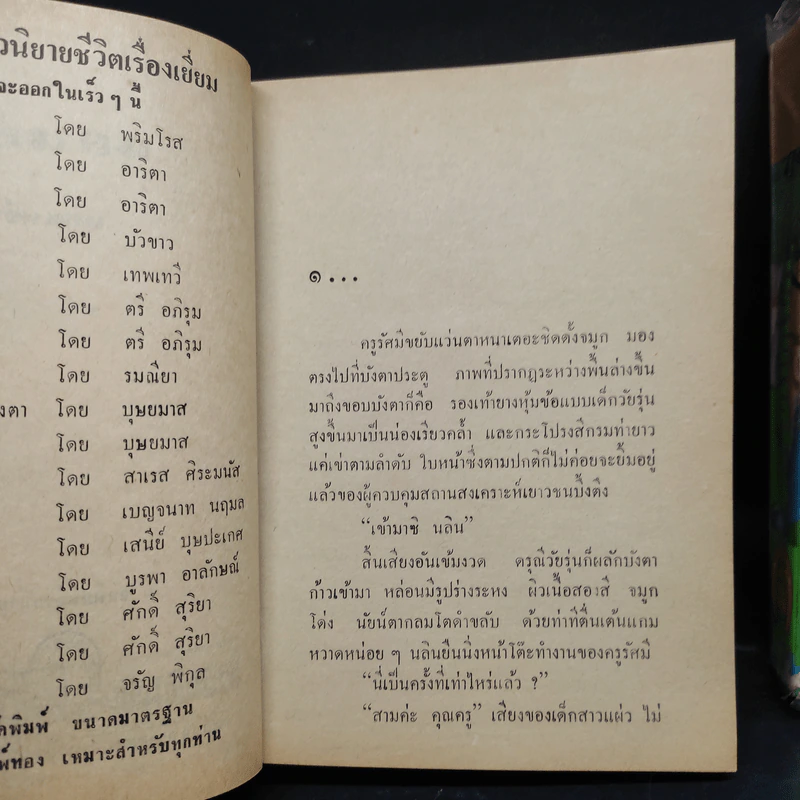 วนิยายชีวิตเรื่องเยี่ยม
จะออกในเร็ว ๆ นี้
โดย พริมโรส
โดย อาริตา
โดย อาริตา
โดย บัวขาว
โดย เทพเทวี
โดย ตรี อภิรุม
โดย ตรี อภิรุม
โดย รมณียา
งตา โดย บุษยมาส
โดย บุษยมาส
โดย สาเรส ศิระมนัส
โดย เบญจนาท นฤมล
โดย เสนีย์ บุษปะเกศ
โดย บูรพา อาลักษณ์
โดย ศักดิ์ สุริยา
โดย ศักดิ์ สุริยา
โดย จรัญ พิกุล
พิมพ์ ขนาดมาตรฐาน
พ์ทอง เหมาะสำหรับทุกท่าน
๑ ...
ครูรัศมีขยับแว่นตาหนาเตอะชิดดั้งจมูก มอง
ตรงไปที่บังตาประตู ภาพที่ปรากฏระหว่างพื้นล่างขึ้น
มาถึงขอบบังตาก็คือ รองเท้ายางหุ้มข้อแบบเด็กวัยรุ่น
สูงขึ้นมาเป็นน่องเรียวคล้ำ และกระโปรงสีกรมท่ายาว
แค่เข่าตามลำดับ ใบหน้าซึ่งตามปกติก็ไม่ค่อยจะยิ้มอยู่
แล้วของผู้ควบคุมสถานสงเคราะห์เยาวชนบึ้งตึง
“เข้ามาซิ นลิน”
สิ้นเสียงอันเข้มงวด ดรุณีวัยรุ่นก็ผลักบังตา
ก้าวเข้ามา หล่อนมีรูปร่างระหง ผิวเนื้อสองสี จมูก
โด่ง นัยน์ตากลมโตดำขลับ ด้วยท่าทีตื่นเต้นแกม
หวาดหน่อย ๆ นลินยืนนิ่งหน้าโต๊ะทำงานของครูรัศมี
“นี่เป็นครั้งที่เท่าไหร่แล้ว ?”
“สามค่ะ คุณครู” เสียงของเด็กสาวแผ่ว ไม่